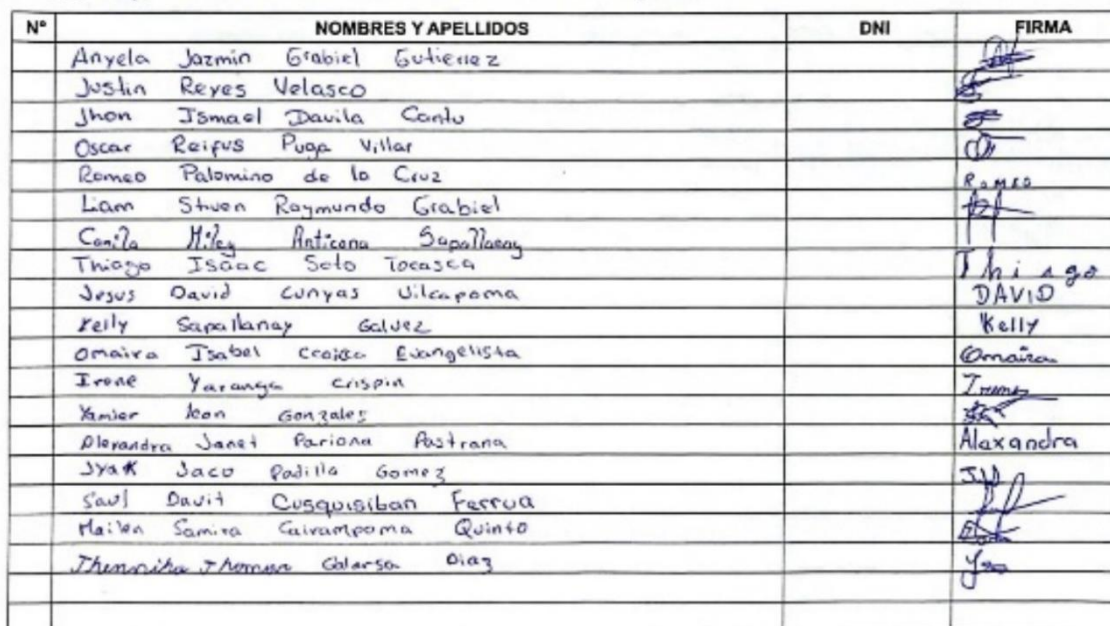 N° NOMBRES Y APELLIDOS DNI FIRMA
Anyela Jazmin Grabiel Gutierrez
Justin Reyes Velasco
Jhon Ismael Davila Cantu
Oscar Reifus Puga Villar
Romeo Palomino de la Cruz ROMEO
Liam Stiven Raymundo Grabiel
Camila Miley Anticona Sapallanay
Thiago Isaac Soto Tocasca Thiago
Jesus David Cunyas Vilcapoma DAVID
Kelly Sapallanay Galvez Kelly
Omaira Isabel Evangelista Omaira
Irene Yaranga Crispin Irene
Yamier leon Gonzales
Alexandra Janet Pariona Pastrana Alaxandra
JyaK Jaco Padilla Gomez
Saul Davit Cusquisiban Ferrua
Mailen Samira Cairampoma Quinto
Jhennika Galarsa Diaz